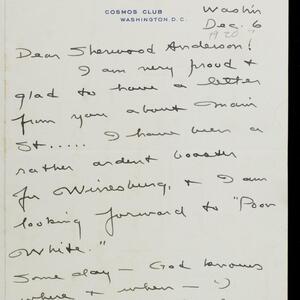 COSMOS CLUB
WASHINGTON, D.C.
Wash'n
Dec. 6
1920?
Dear Sherwood Anderson!
I am very proud &
glad to have a letter
from you about Main
St..... I have been a
rather ardent booster
for Winesburg, & I am
looking forward to "Poor
White."
Some day — God knows
where & when —